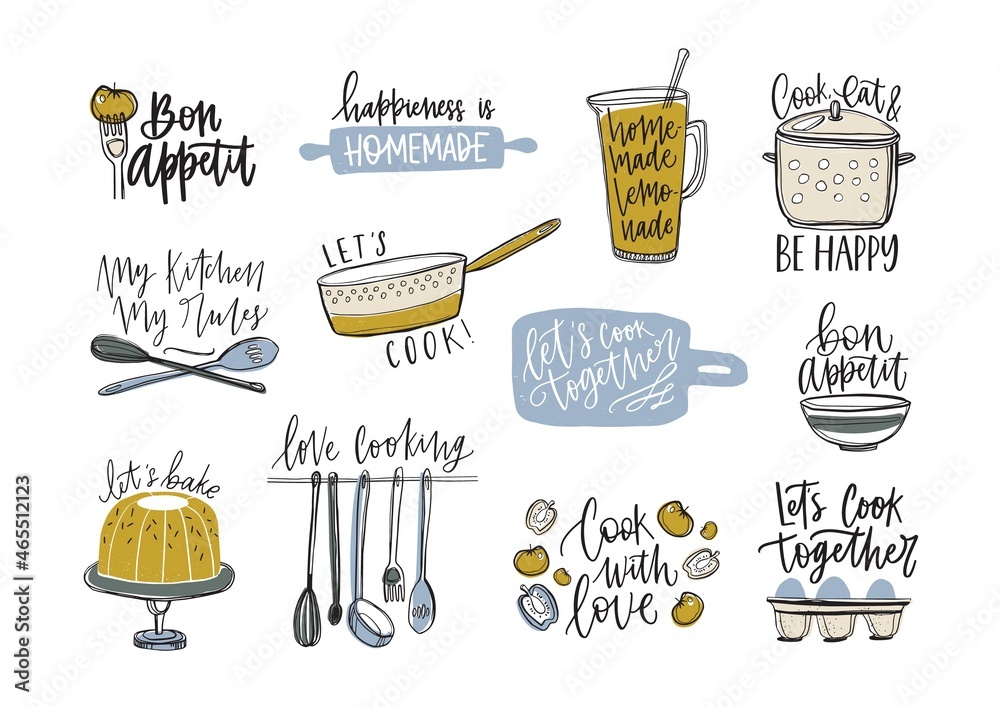 Bon
appetit
happieness is
HOMEMADE
home-
made
lemo-
nade
Cook, eat &
BE HAPPY
My Kitchen
My Rules
LET'S
COOK!
let's cook
together
bon
appetit
let's bake
love cooking
Cook
with
love
Let's Cook
together
Adobe Stock | #465512123